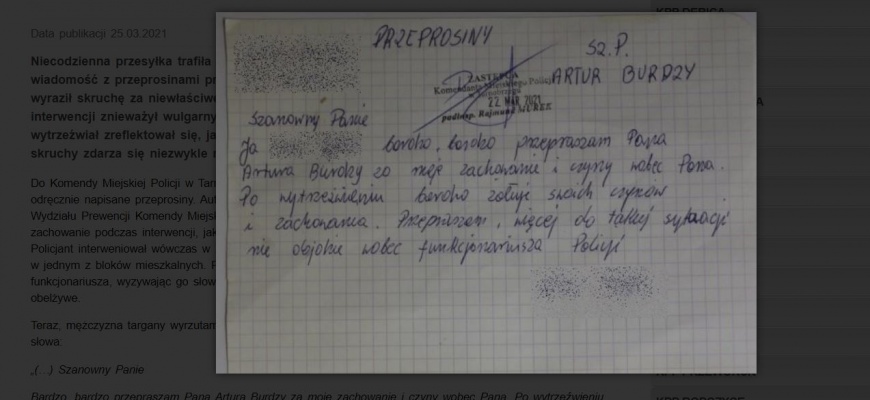 KPP DĘBICA
Data publikacji 25.03.2021
Niecodzienna przesyłka trafiła
wiadomość z przeprosinami
wyraził skruchę za niewłaściw
interwencji znieważył wulgarny
wytrzeźwiał zreflektował się,
skruchy zdarza się niezwykle
Do Komendy Miejskiej Policji w
odręcznie napisane przeprosiny.
Wydziału Prewencji Komendy Miejsk
zachowanie podczas interwencji,
Policjant interweniował wówczas w
w jednym z bloków mieszkalnych.
funkcjonariusza, wyzywając go
obelżywe.
Teraz, mężczyzna targany wyrzutam
słowa:
„(…) Szanowny Panie
Bardzo, bardzo przepraszam Pana Artura Burdzy za moje zachowanie i czyny wobec Pana. Po wytrzeźwieniu
PRZEPROSINY
SZ.P.
ARTUR BURDZY
ZASTĘPCA
Komendanta Miejskiego Policji
w Tarnobrzegu
22. MAR. 2021
podinsp. Rajmund
Szanowny Panie
Ja bardzo, bardzo przepraszam Pana
Artura Burdzy za moje zachowanie i czyny wobec Pana.
Po wytrzeźwieniu bardzo żałuję swoich czynów
i zachowania. Przepraszam, więcej do takiej sytuacji
nie dojdzie wobec funkcjonariusza Policji